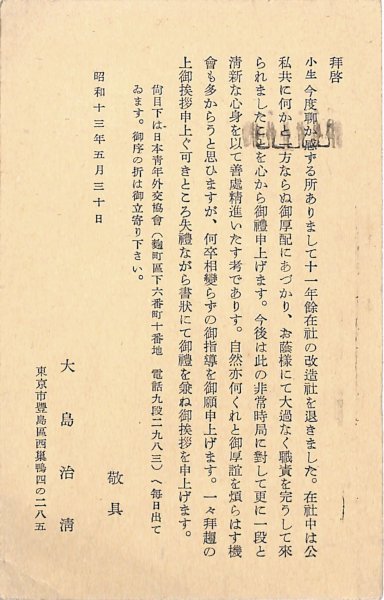 拜啓
小生 今度聊か感ずる所ありまして十一年餘在社の改造社を退きました。在社中は公
私共に何かと一方ならぬ御厚配にあづかり、お蔭樣にて大過なく職責を完うして來
られましたことを心から御禮申上げます。今後は此の非常時局に對して更に一段と
清新な心身を以て善處精進いたす考であります。自然亦何くれと御厚誼を煩らはす機
會も多からうと思ひますが、何卒相變らずの御指導を御願申上げます。一々拜趨の
上御挨拶申上ぐ可きところ失禮ながら書狀にて御禮を兼ね御挨拶を申上げます。
敬具
尙目下は日本靑年外交協會（麴町區下六番町十番地 電話九段二九八三）へ每日出て
ゐます。御序の折は御立寄り下さい。
昭和十三年五月三十日
大島治淸
東京市豐島區西巢鴨四の二八五